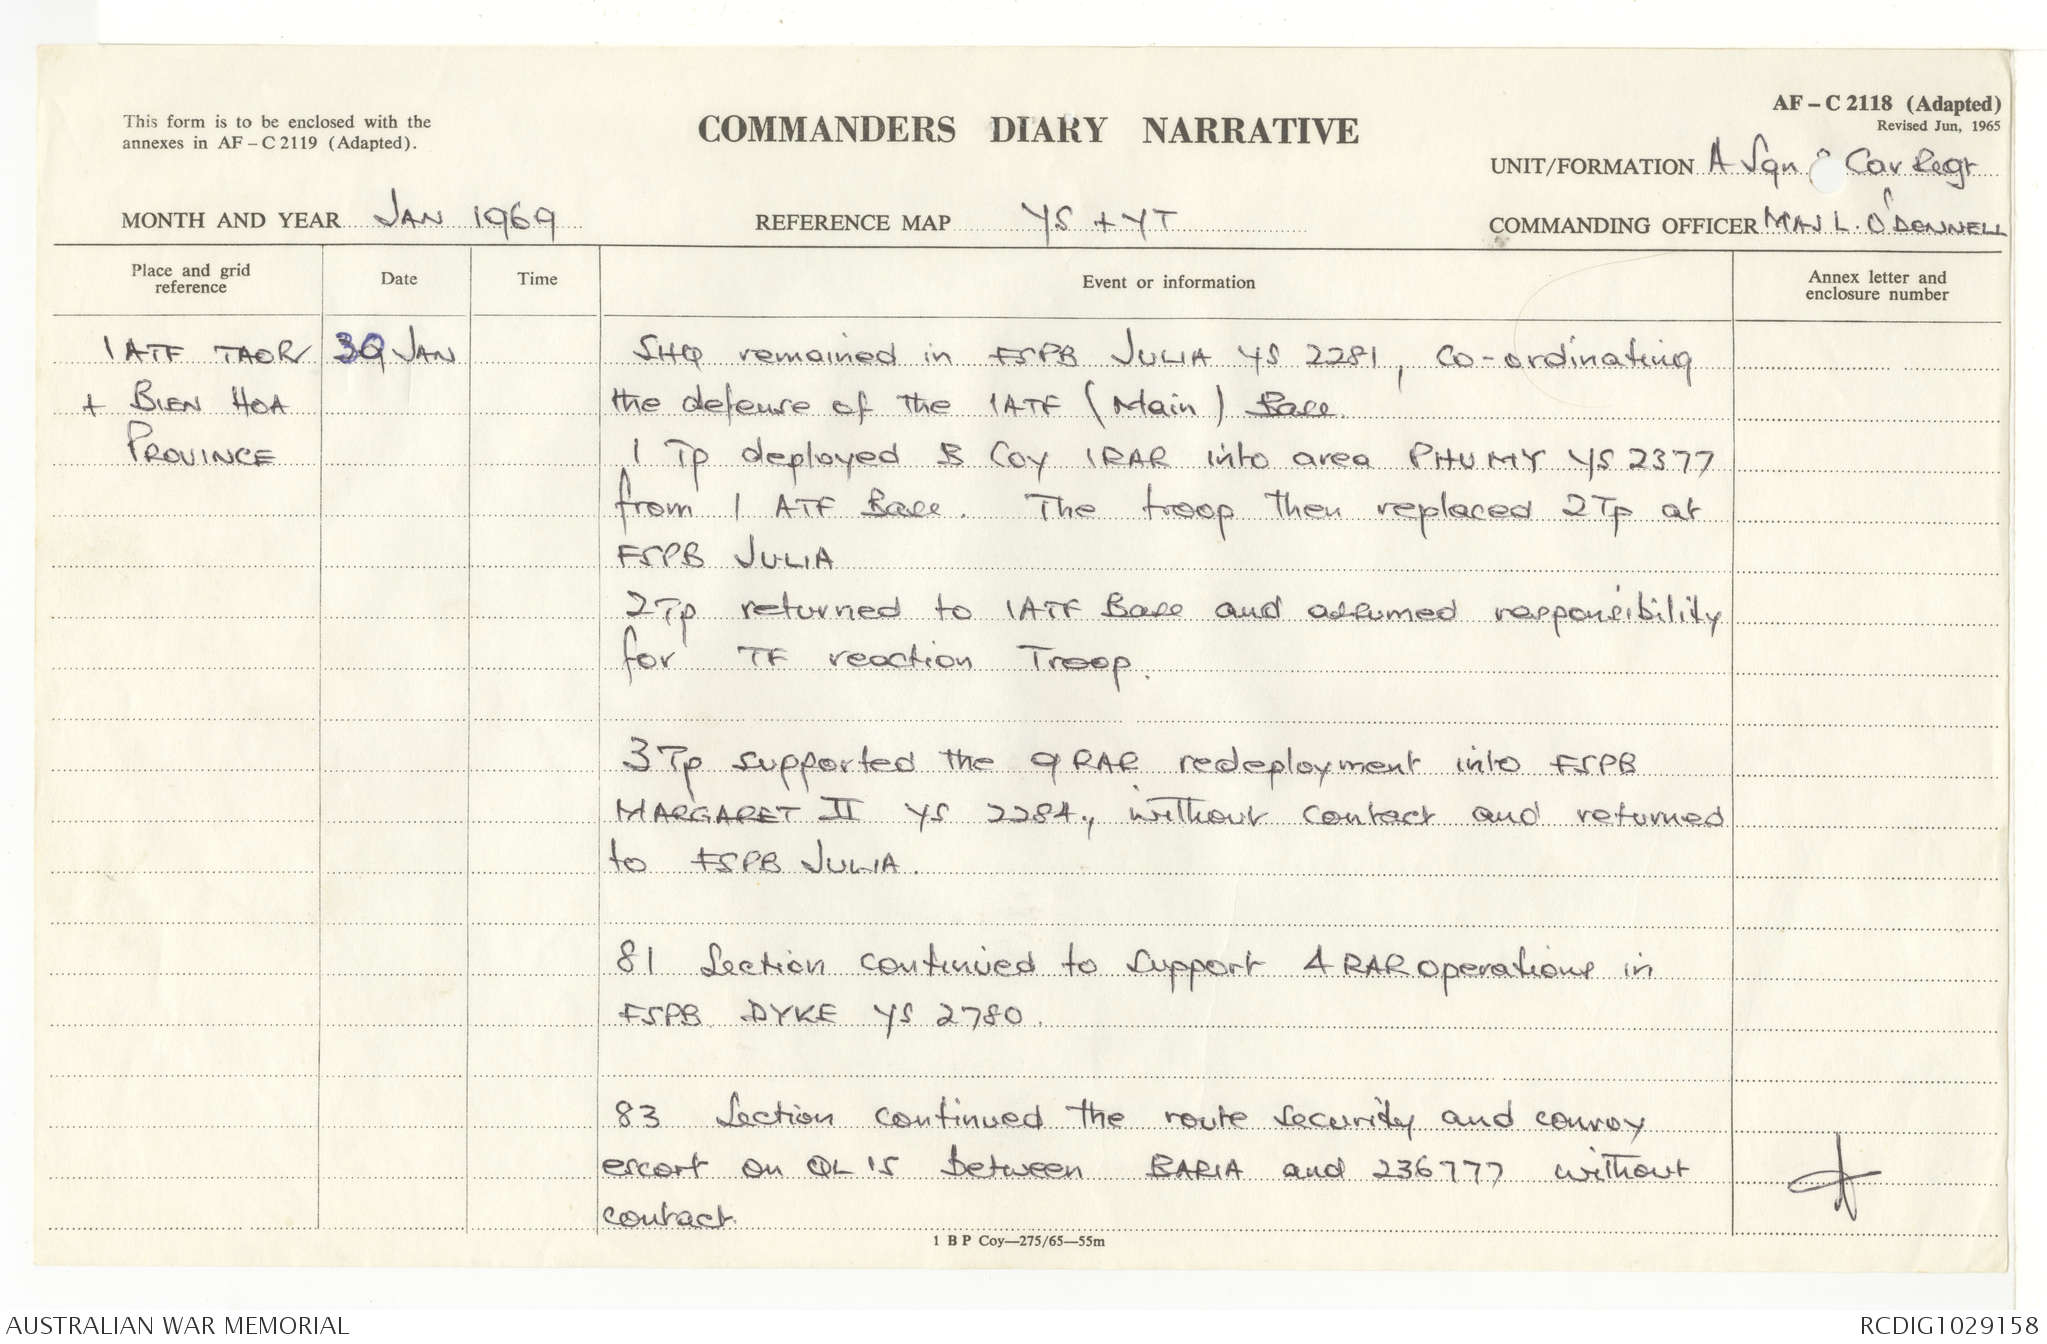 This form is to be enclosed with the
annexes in AF – C 2119 (Adapted).
COMMANDERS DIARY NARRATIVE
AF – C 2118 (Adapted)
Revised Jun, 1965
UNIT/FORMATION A Sqn Cav Regt
MONTH AND YEAR JAN 1969
REFERENCE MAP YS + YT
COMMANDING OFFICER MAJ L. O'DONNELL
Place and grid
reference
Date
Time
Event or information
Annex letter and
enclosure number
1 ATF TAOR 30 JAN SHQ remained in FSPB JULIA YS 2281, co-ordinating
+ BIEN HOA the defense of the 1ATF (Main) Base.
PROVINCE 1 Tp deployed B Coy 1RAR into area PHU MY YS 2377
from 1 ATF Base. The troop then replaced 2Tp at
FSPB JULIA
2Tp returned to 1ATF Base and assumed responsibility
for TF reaction Troop.
3Tp supported the 9RAR redeployment into FSPB
MARGARET II YS 2284, without contact and returned
to FSPB JULIA.
81 Section continued to support 4RAR operations in
FSPB DYKE YS 2780.
83 Section continued the route security and convoy
escort on QL 15 between BARIA and 236777 without
contact.
1 B P Coy—275/65—55m
AUSTRALIAN WAR MEMORIAL
RCDIG1029158